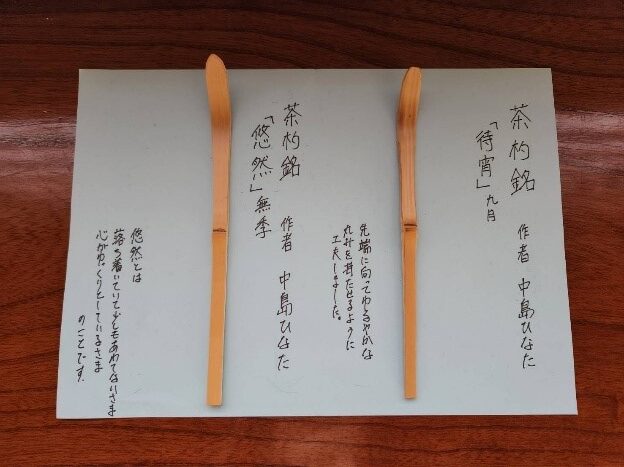 茶杓銘
「待宵」九月
作者 中島ひなた
先端に向ってゆるやかな
丸みを持たせるように
工夫しました。
茶杓銘
「悠然」無季
作者 中島ひなた
悠然とは
落ち着いていて少しもあわてないさま
心がゆっくりとしているさま
のことです.